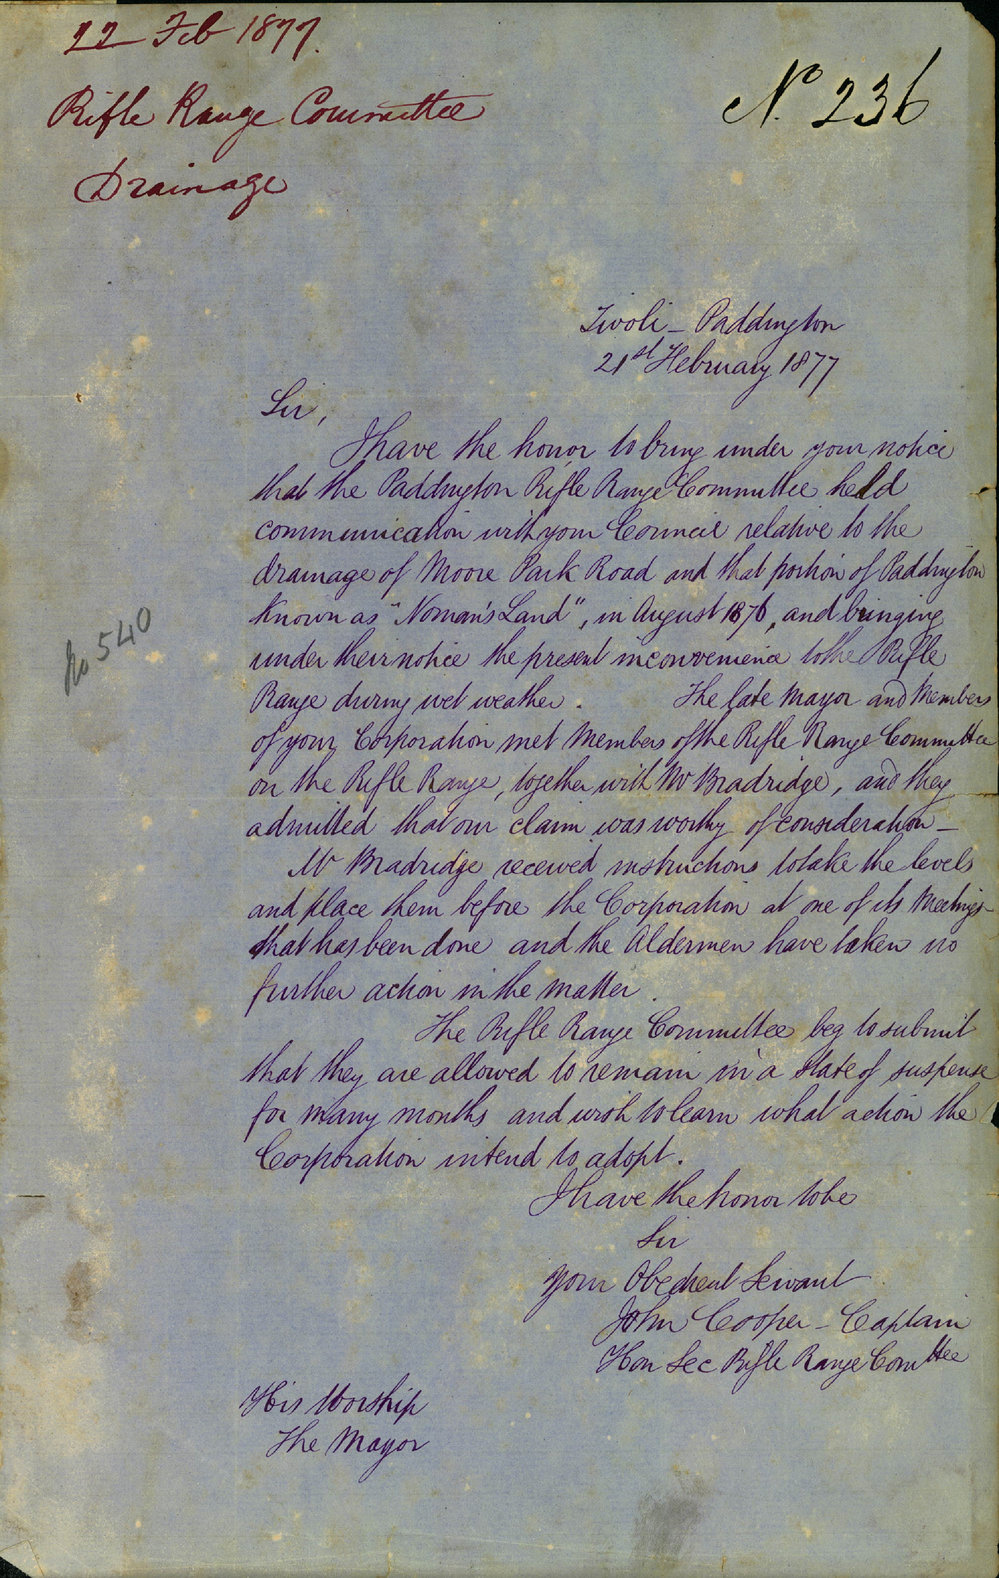 22 Feb 1877.
Rifle Range Committee
Drainage
No. 236
Tivoli – Paddington
21st February 1877
Sir,
I have the honor to bring under your notice
that the Paddington Rifle Range Committee held
communication with your Council relative to the
drainage of Moore Park Road and that portion of Paddington
known as "Noman's Land", in August 1876, and bringing
under their notice the present inconvenience to the Rifle
Range during wet weather. The late Mayor and Members
of your Corporation met Members of the Rifle Range Committee
on the Rifle Range, together with Mr Bradridge, and they
admitted that our claim was worthy of consideration –
Mr Bradridge received instructions to take the levels
and place them before the Corporation at one of its Meetings –
that has been done and the Aldermen have taken no
further action in the matter.
The Rifle Range Committee beg to submit
that they are allowed to remain in a state of suspense
for many months and wish to learn what action the
Corporation intend to adopt.
I have the honor to be
Sir
Your Obedient Servant
John Cooper – Captain
Hon Sec Rifle Range Comttee
His Worship
The Mayor
No 540